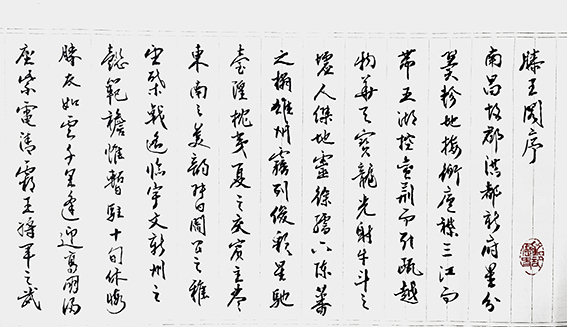 滕王閣序
南昌故郡洪都新府星分
翼軫地接衡廬襟三江而
帶五湖控蠻荊而引甌越
物華天寶龍光射牛斗之
墟人傑地靈徐孺下陳蕃
之榻雄州霧列俊彩星馳
臺隍枕夷夏之交賓主盡
東南之美都督閻公之雅
望棨戟遙臨宇文新州之
懿範襜帷暫駐十旬休暇
勝友如雲千里逢迎高朋滿
座紫電清霜王將軍之武